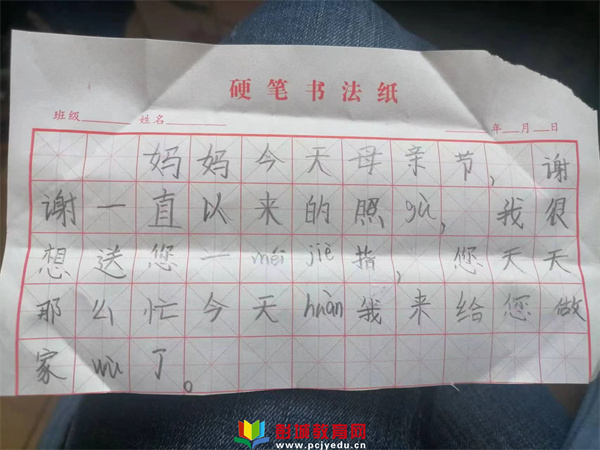 硬笔书法纸
班级 姓名 年 月 日
妈妈今天母亲节，谢
谢一直以来的照gù，我很
想送您一méi jiè指，您天天
那么忙今天huàn我来给您做
家wù了。
彭城教育网
www.pcjyedu.cn